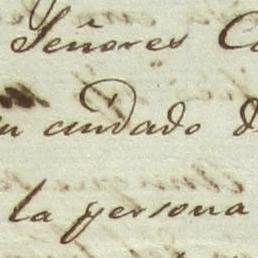 Señores C
su cuidado d
la persona